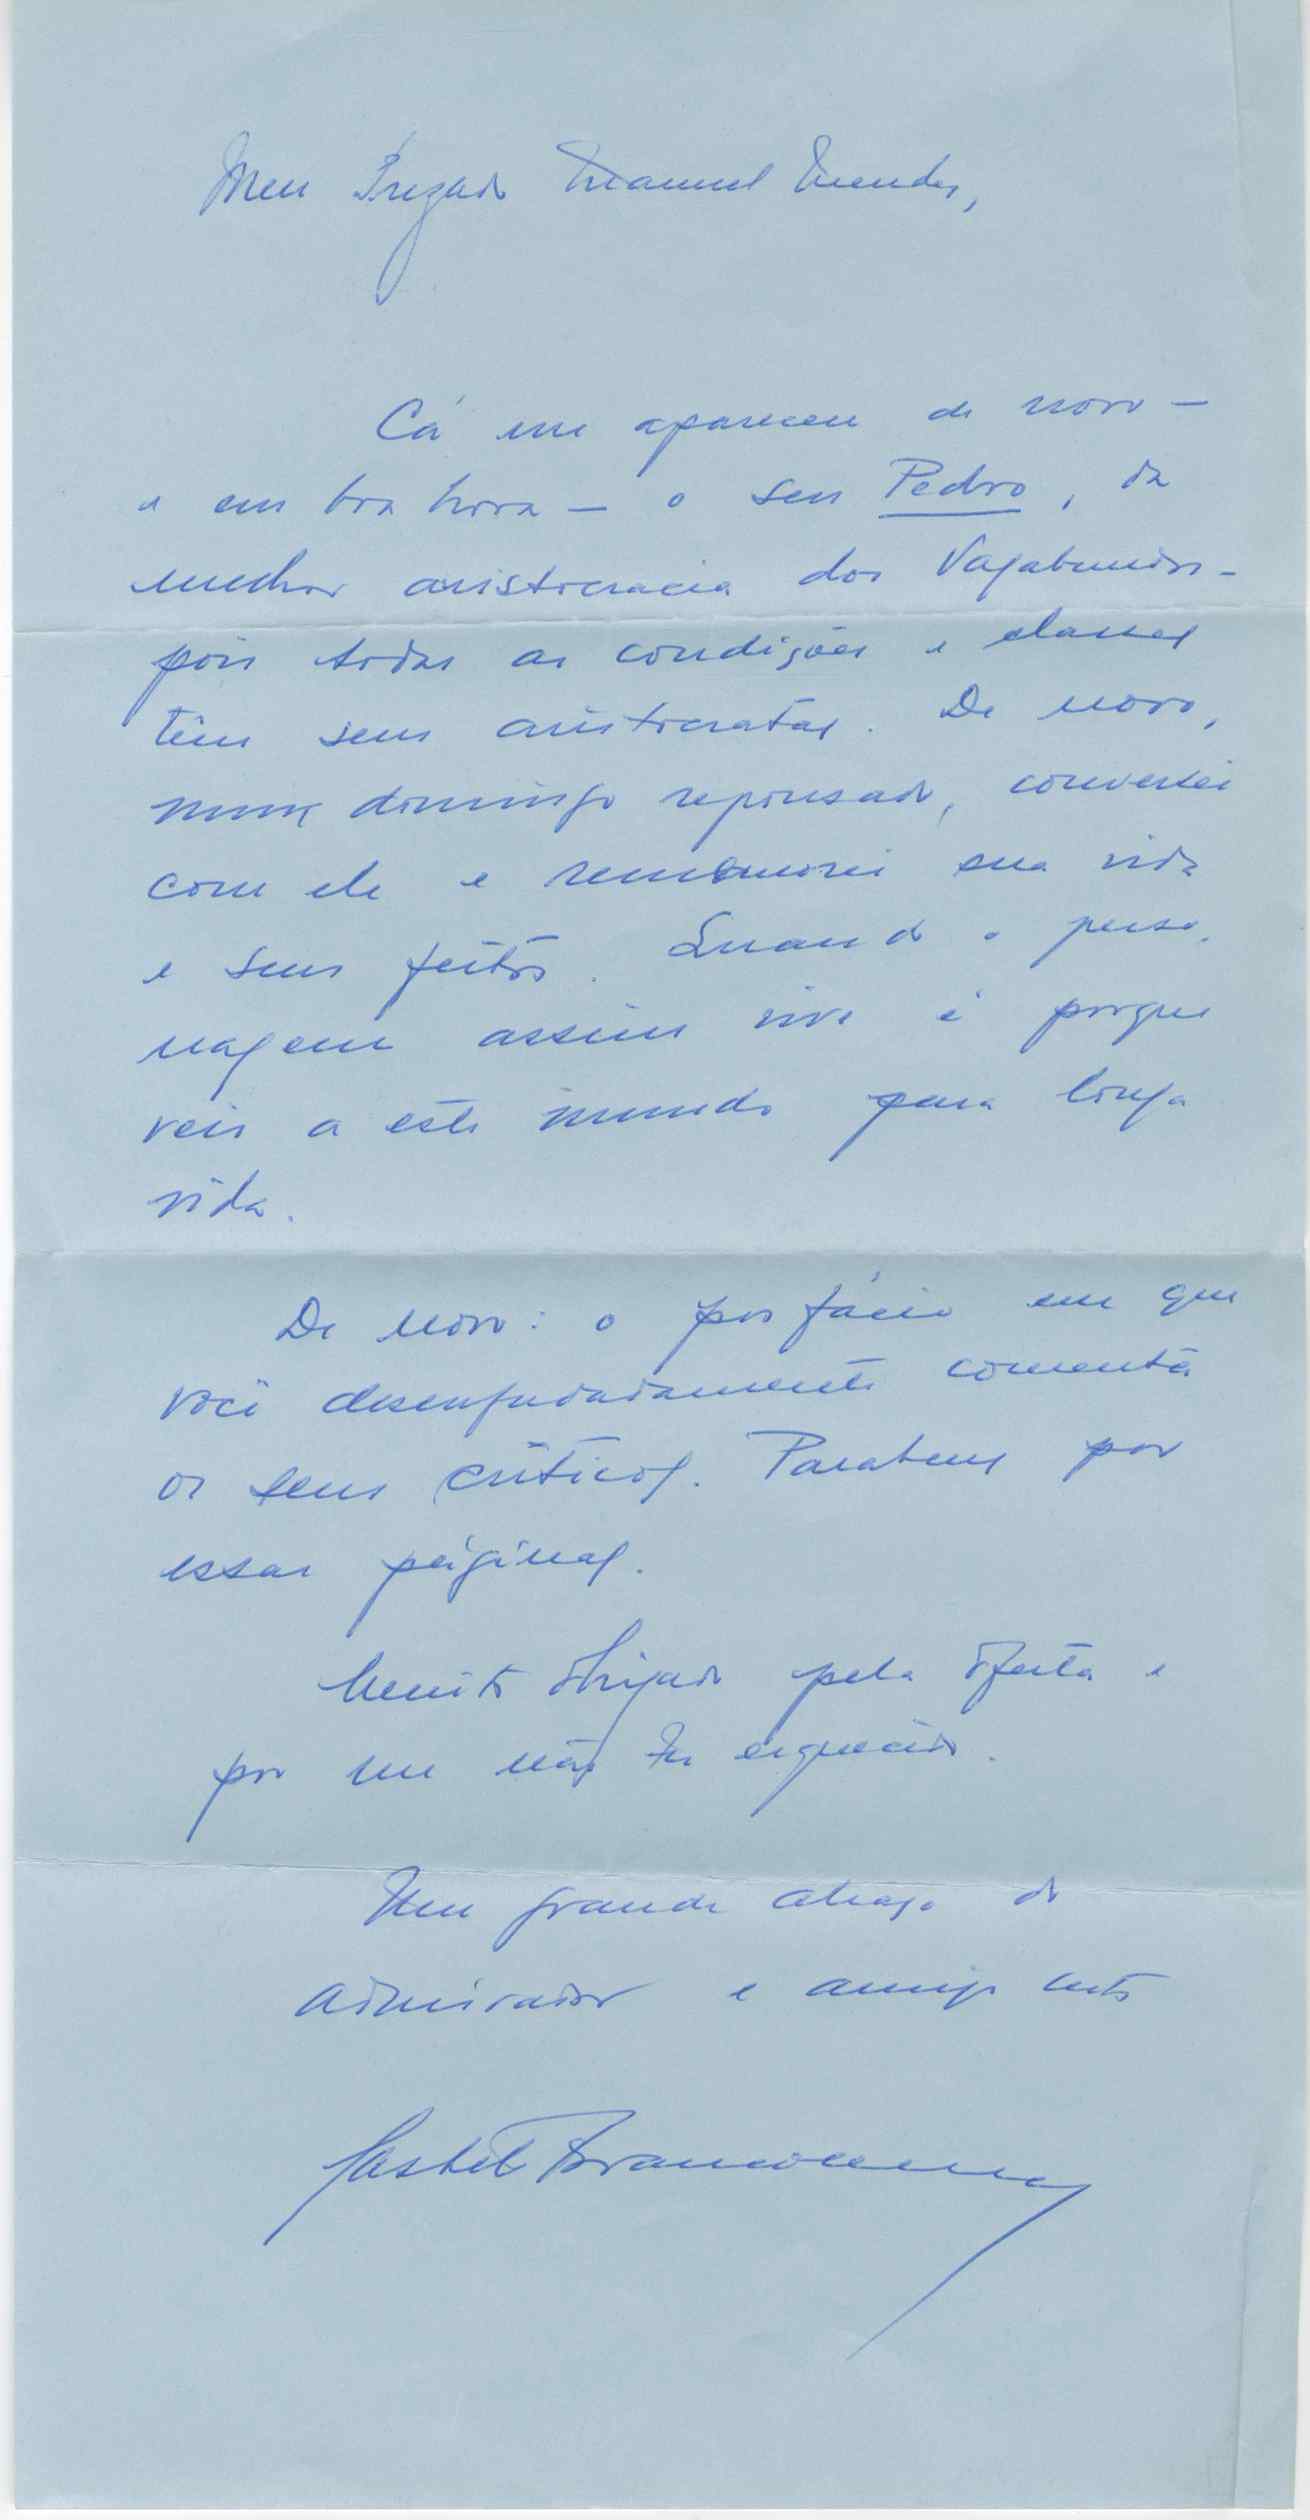 Meu Prezado Manuel Mendes,
Cá me apareceu de novo —
e em boa hora — o seu Pedro, da
melhor aristocracia dos Vagabundos -
pois todas as condições e classes
têm seus aristocratas. De novo,
num domingo repousado, conversei
com ele e rememorei sua vida
e seus feitos. Quando o perso-
nagem assim vive é porque
veis a este mundo para longa
vida.
De novo: o posfácio em que
você desenfadadamente comenta
os seus críticos. Parabens por
essas páginas.
Muito obrigado pela oferta e
por me não ter esquecido.
Um grande abraço do
admirador e amigo certo
Castelo Branco